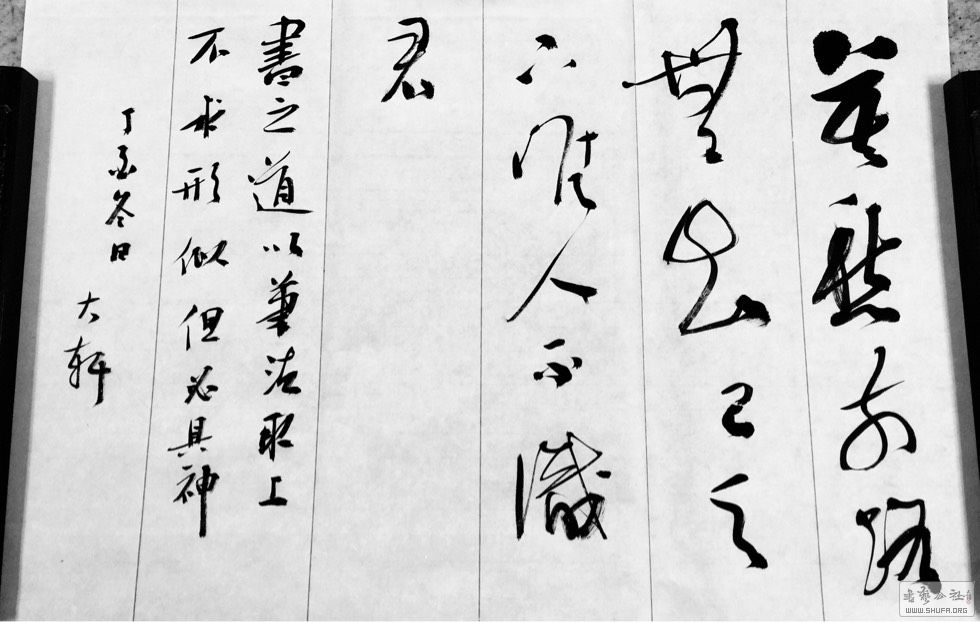 莫愁前路
無知己天
下誰人不識
君
書之道以筆法取上
不求形似但必具神
丁酉冬日
大軒
书艺公社
WWW.SHUFA.ORG